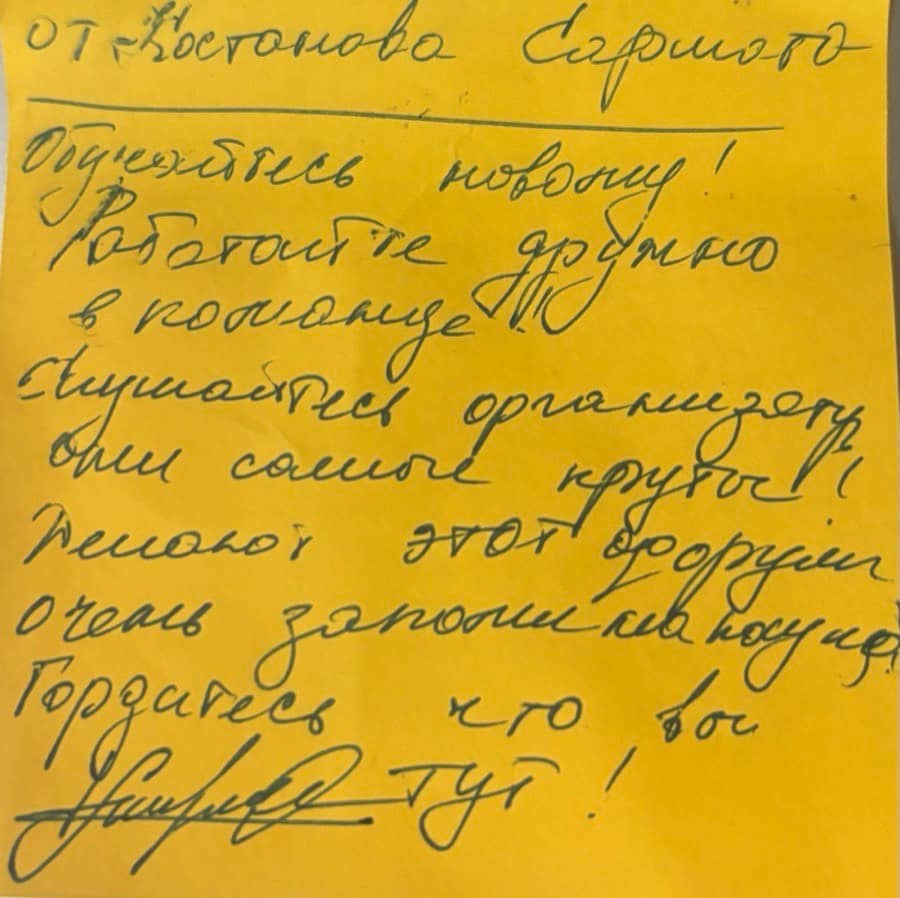 от Костанова Сармата
Обучайтесь новому!
Работайте дружно
в команде!!
Слушайтесь организатр
они самые круты!!
Делают этот форум
очень запоминающимся
Гордитесь что вы
тут!